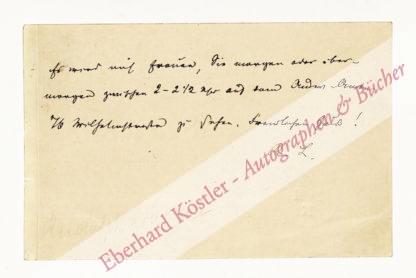 Es wird mich freuen, Sie morgen oder über-
morgen zwischen 2-2 1/2 Uhr auf dem
76 Wilhelmstrasse zu sehen. !
L.
Eberhard Köstler - Autographen & Bücher